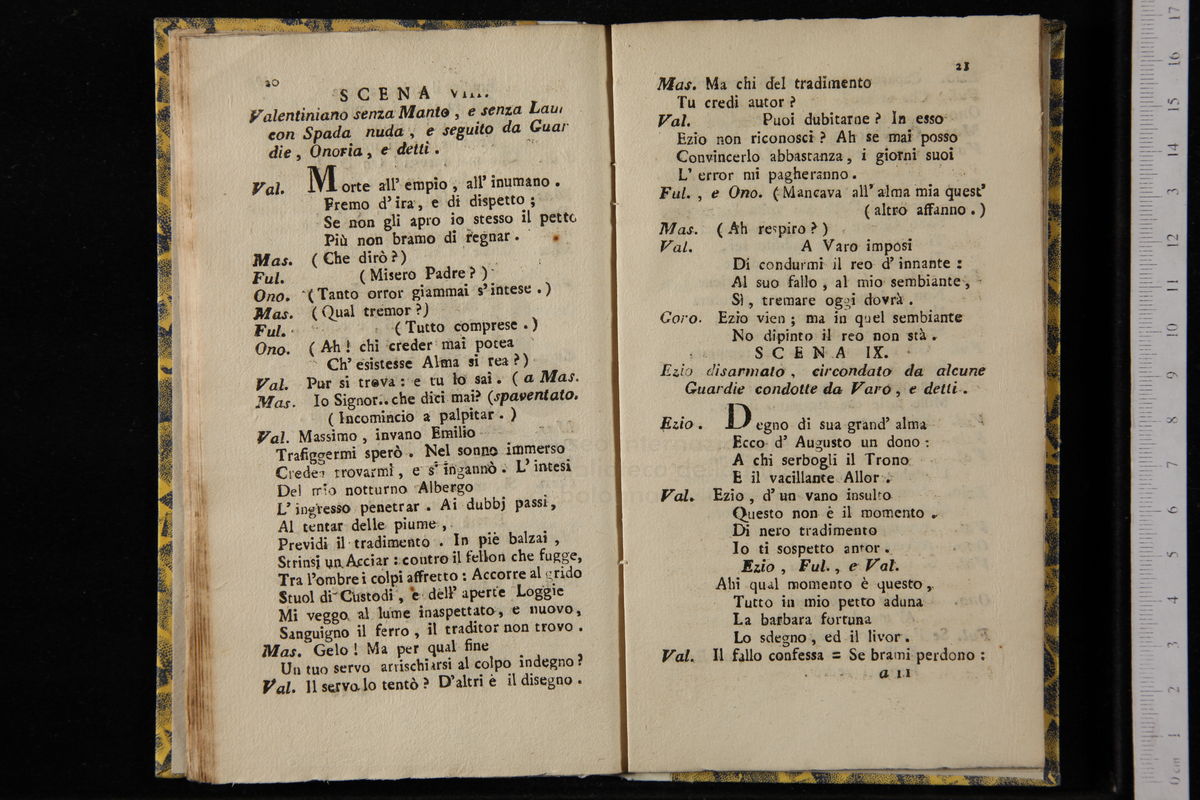 20
SCENA VIII.
Valentiniano senza Manto, e senza Laur
con Spada nuda, e seguito da Guar
die, Onoria, e detti.
Val. Morte all' empio, all' inumano.
Fremo d'ira, e di dispetto;
Se non gli apro io stesso il petto
Più non bramo di regnar.
Mas. (Che dirò?)
Ful. (Misero Padre?)
Ono. (Tanto orror giammai s'intese.)
Mas. (Qual tremor?)
Ful. (Tutto comprese.)
Ono. (Ah! chi creder mai potea
Ch' esistesse Alma si rea?)
Val. Pur si trova: e tu lo sai. (a Mas.
Mas. Io Signor.. che dici mai? (spaventato.
(Incomincio a palpitar.)
Val. Massimo, invano Emilio
Trafiggermi sperò. Nel sonno immerso
Credea trovarmi, e s' ingannò. L' intesi
Del mio notturno Albergo
L' ingresso penetrar. Ai dubbj passi,
Al tentar delle piume,
Previdi il tradimento. In piè balzai,
Strinsi un Acciar: contro il fellon che fugge,
Tra l'ombre i colpi affretto: Accorre al grido
Stuol di Custodi, e dell' aperte Loggie
Mi veggo al lume inaspettato, e nuovo,
Sanguigno il ferro, il traditor non trovo.
Mas. Gelo! Ma per qual fine
Un tuo servo arrischiarsi al colpo indegno?
Val. Il servo lo tentò? D'altri è il disegno.
21
Mas. Ma chi del tradimento
Tu credi autor?
Val. Puoi dubitarne? In esso
Ezio non riconosci? Ah se mai posso
Convincerlo abbastanza, i giorni suoi
L' error mi pagheranno.
Ful., e Ono. (Mancava all' alma mia quest'
(altro affanno.)
Mas. (Ah respiro?)
Val. A Varo imposi
Di condurmi il reo d' innante:
Al suo fallo, al mio sembiante,
Sì, tremare oggi dovrà.
Coro. Ezio vien; ma in quel sembiante
No dipinto il reo non stà.
SCENA IX.
Ezio disarmato, circondato da alcune
Guardie condotte da Varo, e detti.
Ezio. Degno di sua grand' alma
Ecco d' Augusto un dono:
A chi serbogli il Trono
E il vacillante Allor.
Val. Ezio, d' un vano insulto
Questo non è il momento.
Di nero tradimento
Io ti sospetto autor.
Ezio, Ful., e Val.
Ahi qual momento è questo,
Tutto in mio petto aduna
La barbara fortuna
Lo sdegno, ed il livor.
Val. Il fallo confessa = Se brami perdono:
a 11